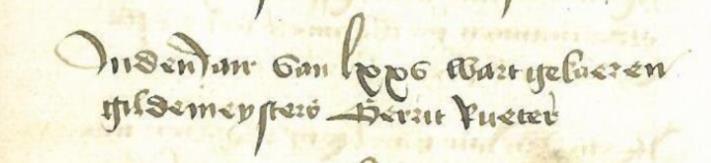 In den Jair van lxxv wart gekaeren
gildemeysters Gerrit Rueter